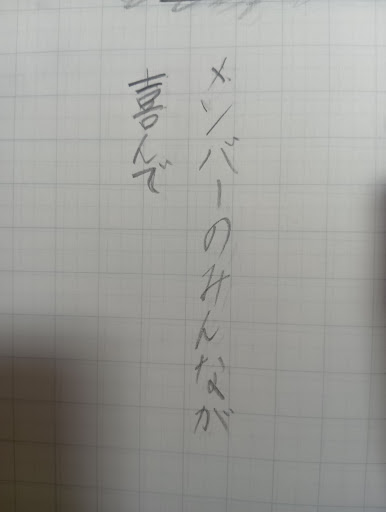 メンバーのみんなが
喜んで